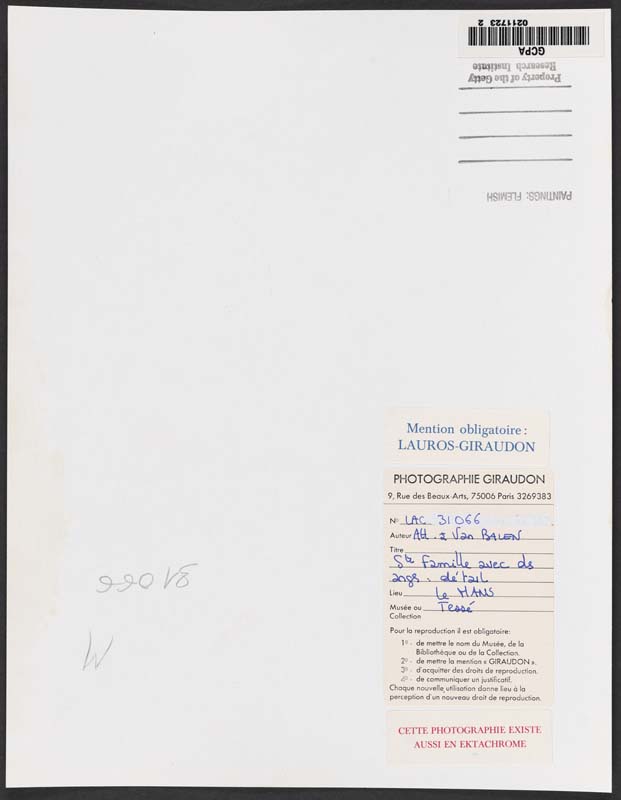 0211723 2
GCPA
Property of the Getty
Research Institute
PAINTINGS: FLEMISH
Mention obligatoire :
LAUROS-GIRAUDON
PHOTOGRAPHIE GIRAUDON
9, Rue des Beaux-Arts, 75006 Paris 3269383
N° LAC 31066
Auteur Att. à Van BALEN
Titre
Ste Famille avec ds
angs. détail
Lieu Le MANS
Musée ou Tessé
Collection
Pour la reproduction il est obligatoire:
1° - de mettre le nom du Musée, de la
Bibliothèque ou de la Collection.
2° - de mettre la mention « GIRAUDON ».
3° - d'acquitter des droits de reproduction.
4° - de communiquer un justificatif.
Chaque nouvelle utilisation donne lieu à la
perception d'un nouveau droit de reproduction.
CETTE PHOTOGRAPHIE EXISTE
AUSSI EN EKTACHROME